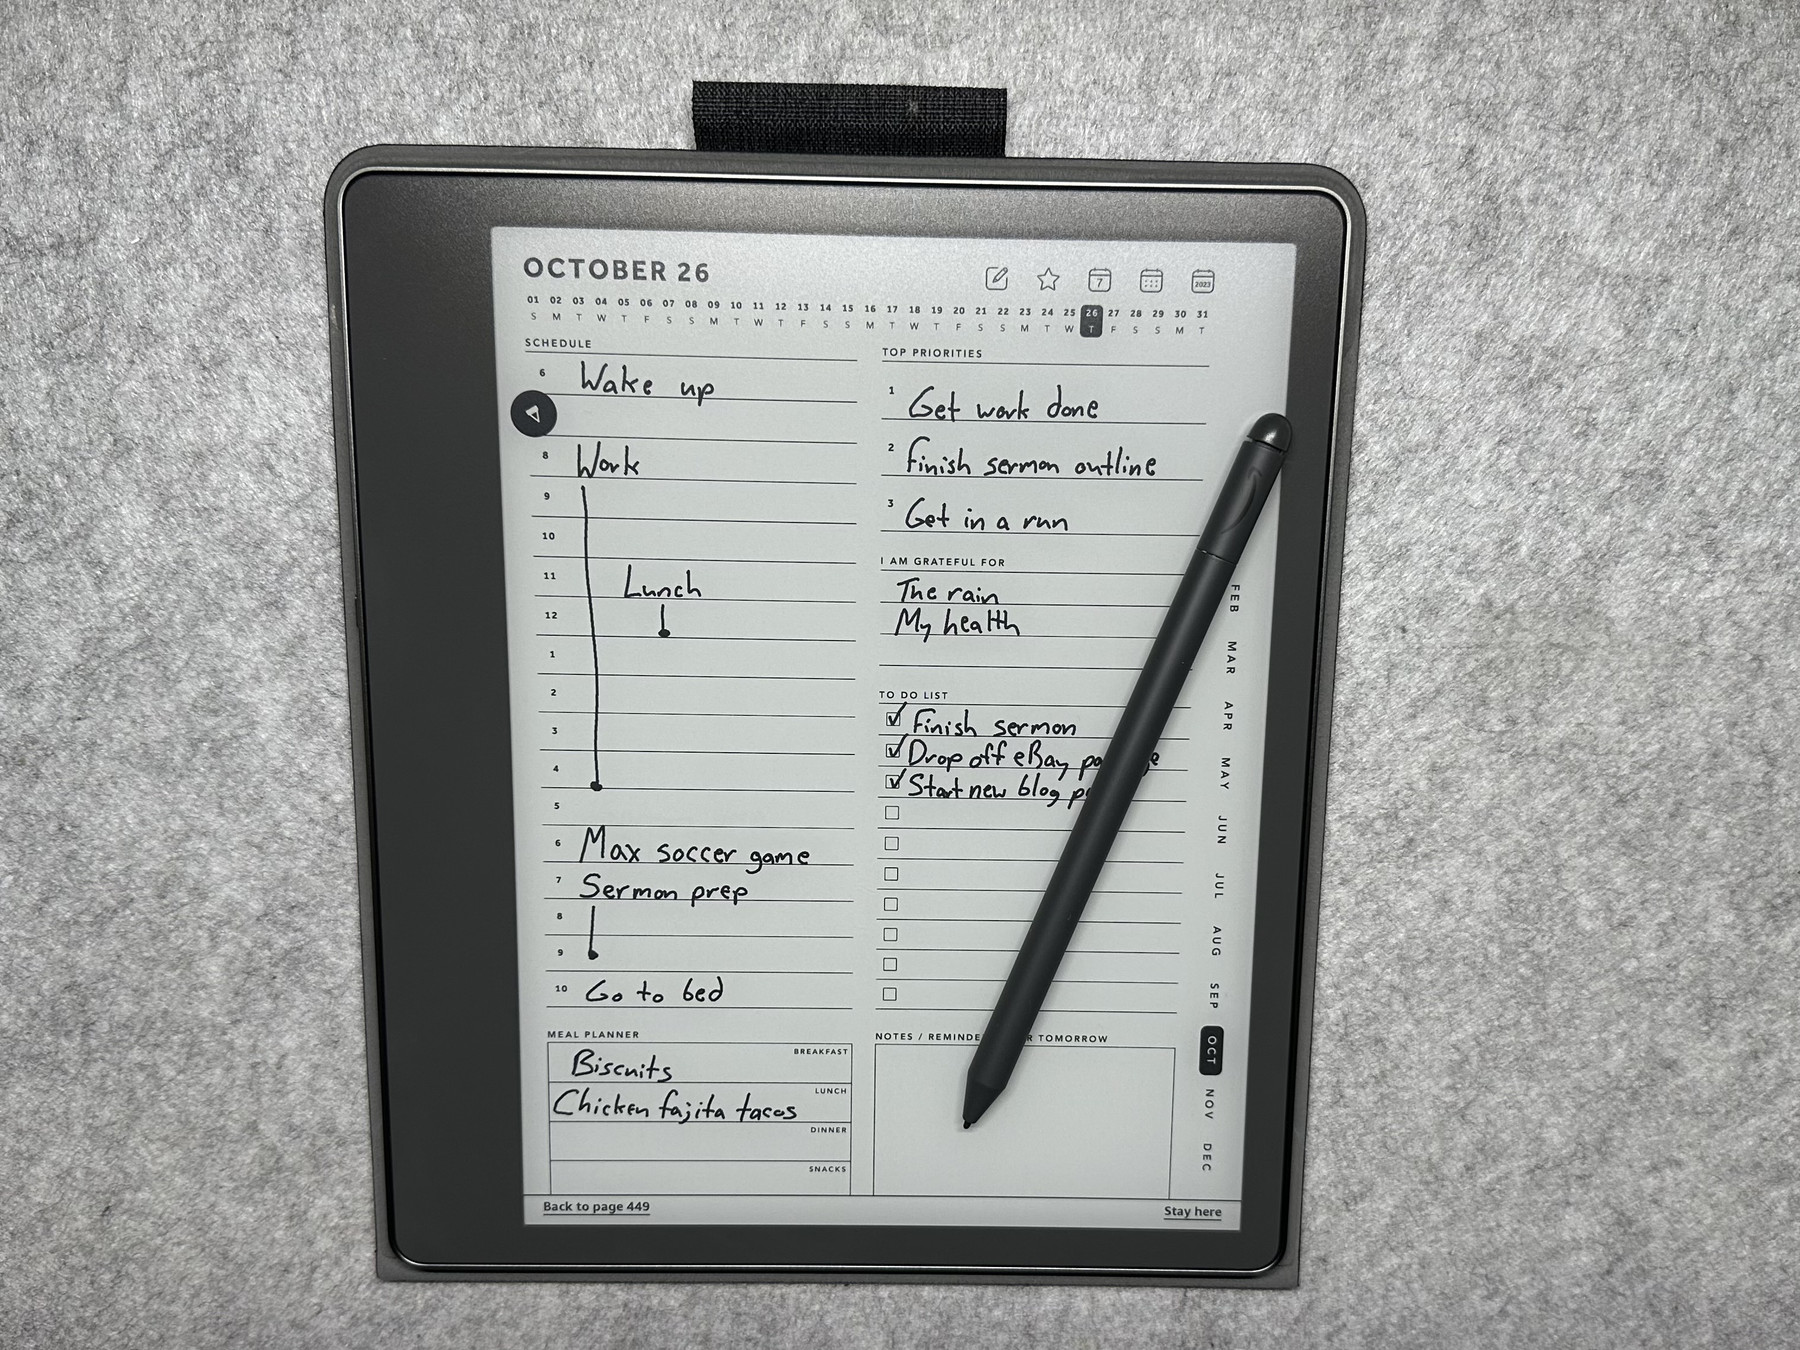 OCTOBER 26
7
2023
01 02 03 04 05 06 07 08 09 10 11 12 13 14 15 16 17 18 19 20 21 22 23 24 25 26 27 28 29 30 31
S M T W T F S S M T W T F S S M T W T F S S M T W T F S S M T
SCHEDULE
6 Wake up
8 Work
9
10
11 Lunch
12
1
2
3
4
5
6 Max soccer game
7 Sermon prep
8
9
10 Go to bed
MEAL PLANNER
BREAKFAST
Biscuits
LUNCH
Chicken fajita tacos
DINNER
SNACKS
TOP PRIORITIES
1 Get work done
2 Finish sermon outline
3 Get in a run
I AM GRATEFUL FOR
The rain
My health
TO DO LIST
Finish sermon
Drop off eBay
Start new blog
NOTES / TOMORROW
FEB
MAR
APR
MAY
JUN
JUL
AUG
SEP
OCT
NOV
DEC
Back to page 449
Stay here